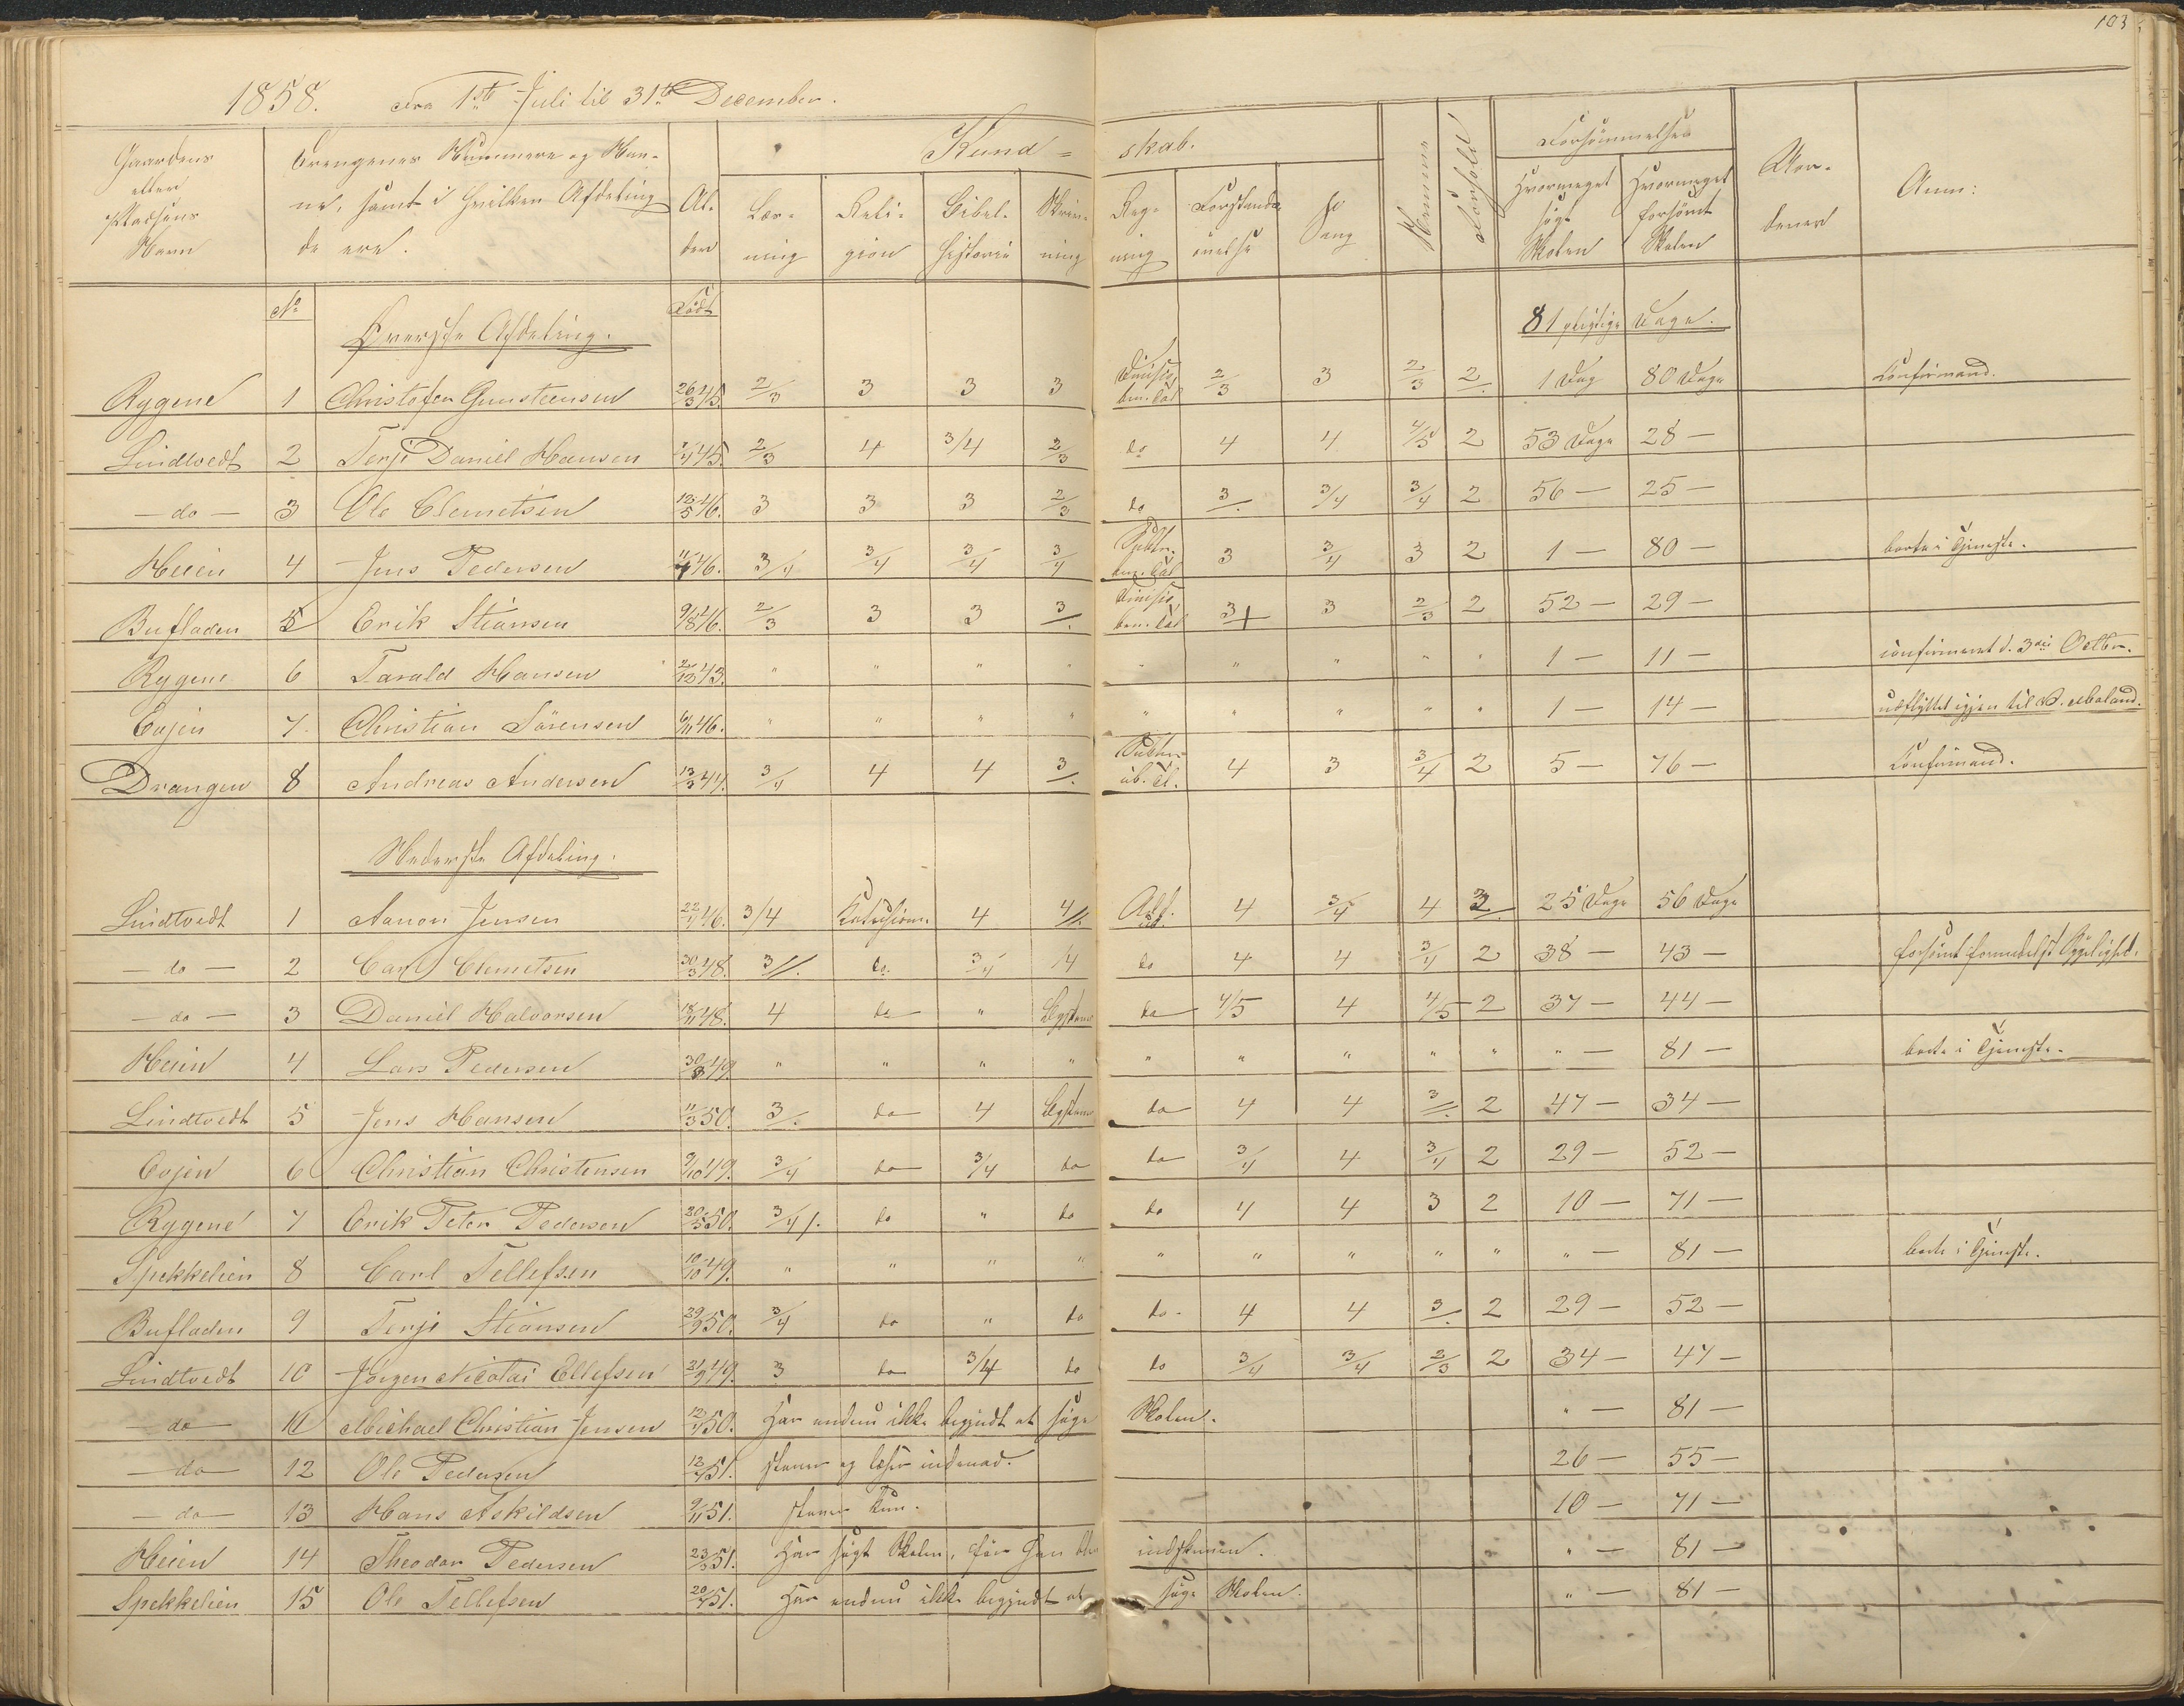 103
1858. Fra 1ste Juli til 31te December.
Gaardens eller Pladsens Navn | Drengenes Nummere og Navne, samt i hvilken Afdeling de ere. | Alder | Kundskab. | Forhold | Forsömmelser | Anm:
Læsning | Religion | Bibelhistorie | Skrivning | Regning | Forstandsövelse | Sang | Hvormeget sögt Skolen | Hvormeget forsömt Skolen
No | Øverste Afdeling. | Födt | 81 pligtige Dage.
Rygene | 1 | Christofer Gunsteensen | 26/3 45. | 2/3 | 3 | 3 | 3 | 2/3 | 3 | 2/3 | 2/. | 1 Dag | 80 Dage | Confirmand.
Lindtvedt | 2 | Terje Daniel Hansen | 45. | 2/3 | 4 | 3/4 | 2/3 | do | 4 | 4 | 4/5 | 2 | 53 Dage | 28 —
— do — | 3 | Ole Clemetsen | 13/5 46. | 3 | 3 | 3 | 2/3 | do | 3/. | 3/4 | 3/4 | 2 | 56 — | 25 —
Heien | 4 | Jens Pedersen | 46. | 3/4 | 3/4 | 3/4 | 3/4 | 3 | 3/4 | 3 | 2 | 1 — | 80 — | borte i Tjeneste.
Bufladen | 5 | Erik Stiansen | 9/8 46. | 2/3 | 3 | 3 | 3/. | 3+ | 3 | 2/3 | 2 | 52 — | 29 —
Rygene | 6 | Tarald Hansen | 2/12 43. | " | " | " | " | " | " | " | " | " | 1 — | 11 — | confirmeret d. 3die Octbr.
Evjen | 7. | Christian Sörensen | 6/11 46. | " | " | " | " | " | " | " | " | " | 1 — | 14 — | udflyttet igjen til
Drangen | 8 | Andreas Andersen | 13/3 44. | 3/4 | 4 | 4 | 3/. | 4 | 3 | 3/4 | 2 | 5 — | 76 — | Confirmand.
Nederste Afdeling.
Lindtvedt | 1 | Aanon Jensen | 22/1 46. | 3/4 | 4 | 4//. | 4 | 3/4 | 4 | 25 Dage | 56 Dage
— do — | 2 | Carl Clemetsen | 30/3 48. | 3//. | do. | 3/4 | 4 | do | 4 | 4 | 3/4 | 2 | 38 — | 43 — | forsömt formedelst Sygelighed.
— do — | 3 | Daniel Halvorsen | 18/11 48. | 4 | do | " | do | 4/5 | 4 | 4/5 | 2 | 37 — | 44 —
Heien | 4 | Lars Pedersen | 30/8 49. | " | " | " | " | " | " | " | " | " | " — | 81 — | borte i Tjeneste.
Lindtvedt | 5 | Jens Hansen | 11/3 50. | 3/. | do | 4 | do | 4 | 4 | 3//. | 2 | 47 — | 34 —
Evjen | 6 | Christian Christensen | 9/10 49. | 3/4 | do | 3/4 | do | do | 3/4 | 4 | 3/4 | 2 | 29 — | 52 —
Rygene | 7 | Erik Peter Pedersen | 20/5 50. | 3/4/. | do | " | do | do | 4 | 4 | 3 | 2 | 10 — | 71 —
Spekkelien | 8 | Carl Tellefsen | 10/10 49. | " | " | " | " | " | " | " | " | " | " — | 81 — | borte i Tjeneste.
Bufladen | 9 | Terje Stiansen | 29/9 50. | 3/4 | do | " | do | do | 4 | 4 | 3/. | 2 | 29 — | 52 —
Lindtvedt | 10 | Jörgen Nicolai Ellefsen | 21/9 49. | 3 | do | 3/4 | do | do | 3/4 | 3/4 | 2/3 | 2 | 34 — | 47 —
do | 11 | Michael Christian Jensen | 50. | Har endnu ikke begyndt at söge Skolen. | " — | 81 —
— do — | 12 | Ole Pedersen | 51. | staver og læser indenad. | 26 — | 55 —
— do — | 13 | Hans Askildsen | 9/11 51. | staver kun. | 10 — | 71 —
Heien | 14 | Theodor Pedersen | 23/3 51. | Har sögt Skolen, för han blev indskreven. | " — | 81 —
Spekkelien | 15 | Ole Tellefsen | 51. | Har endnu ikke begyndt at söge Skolen. | " — | 81 —